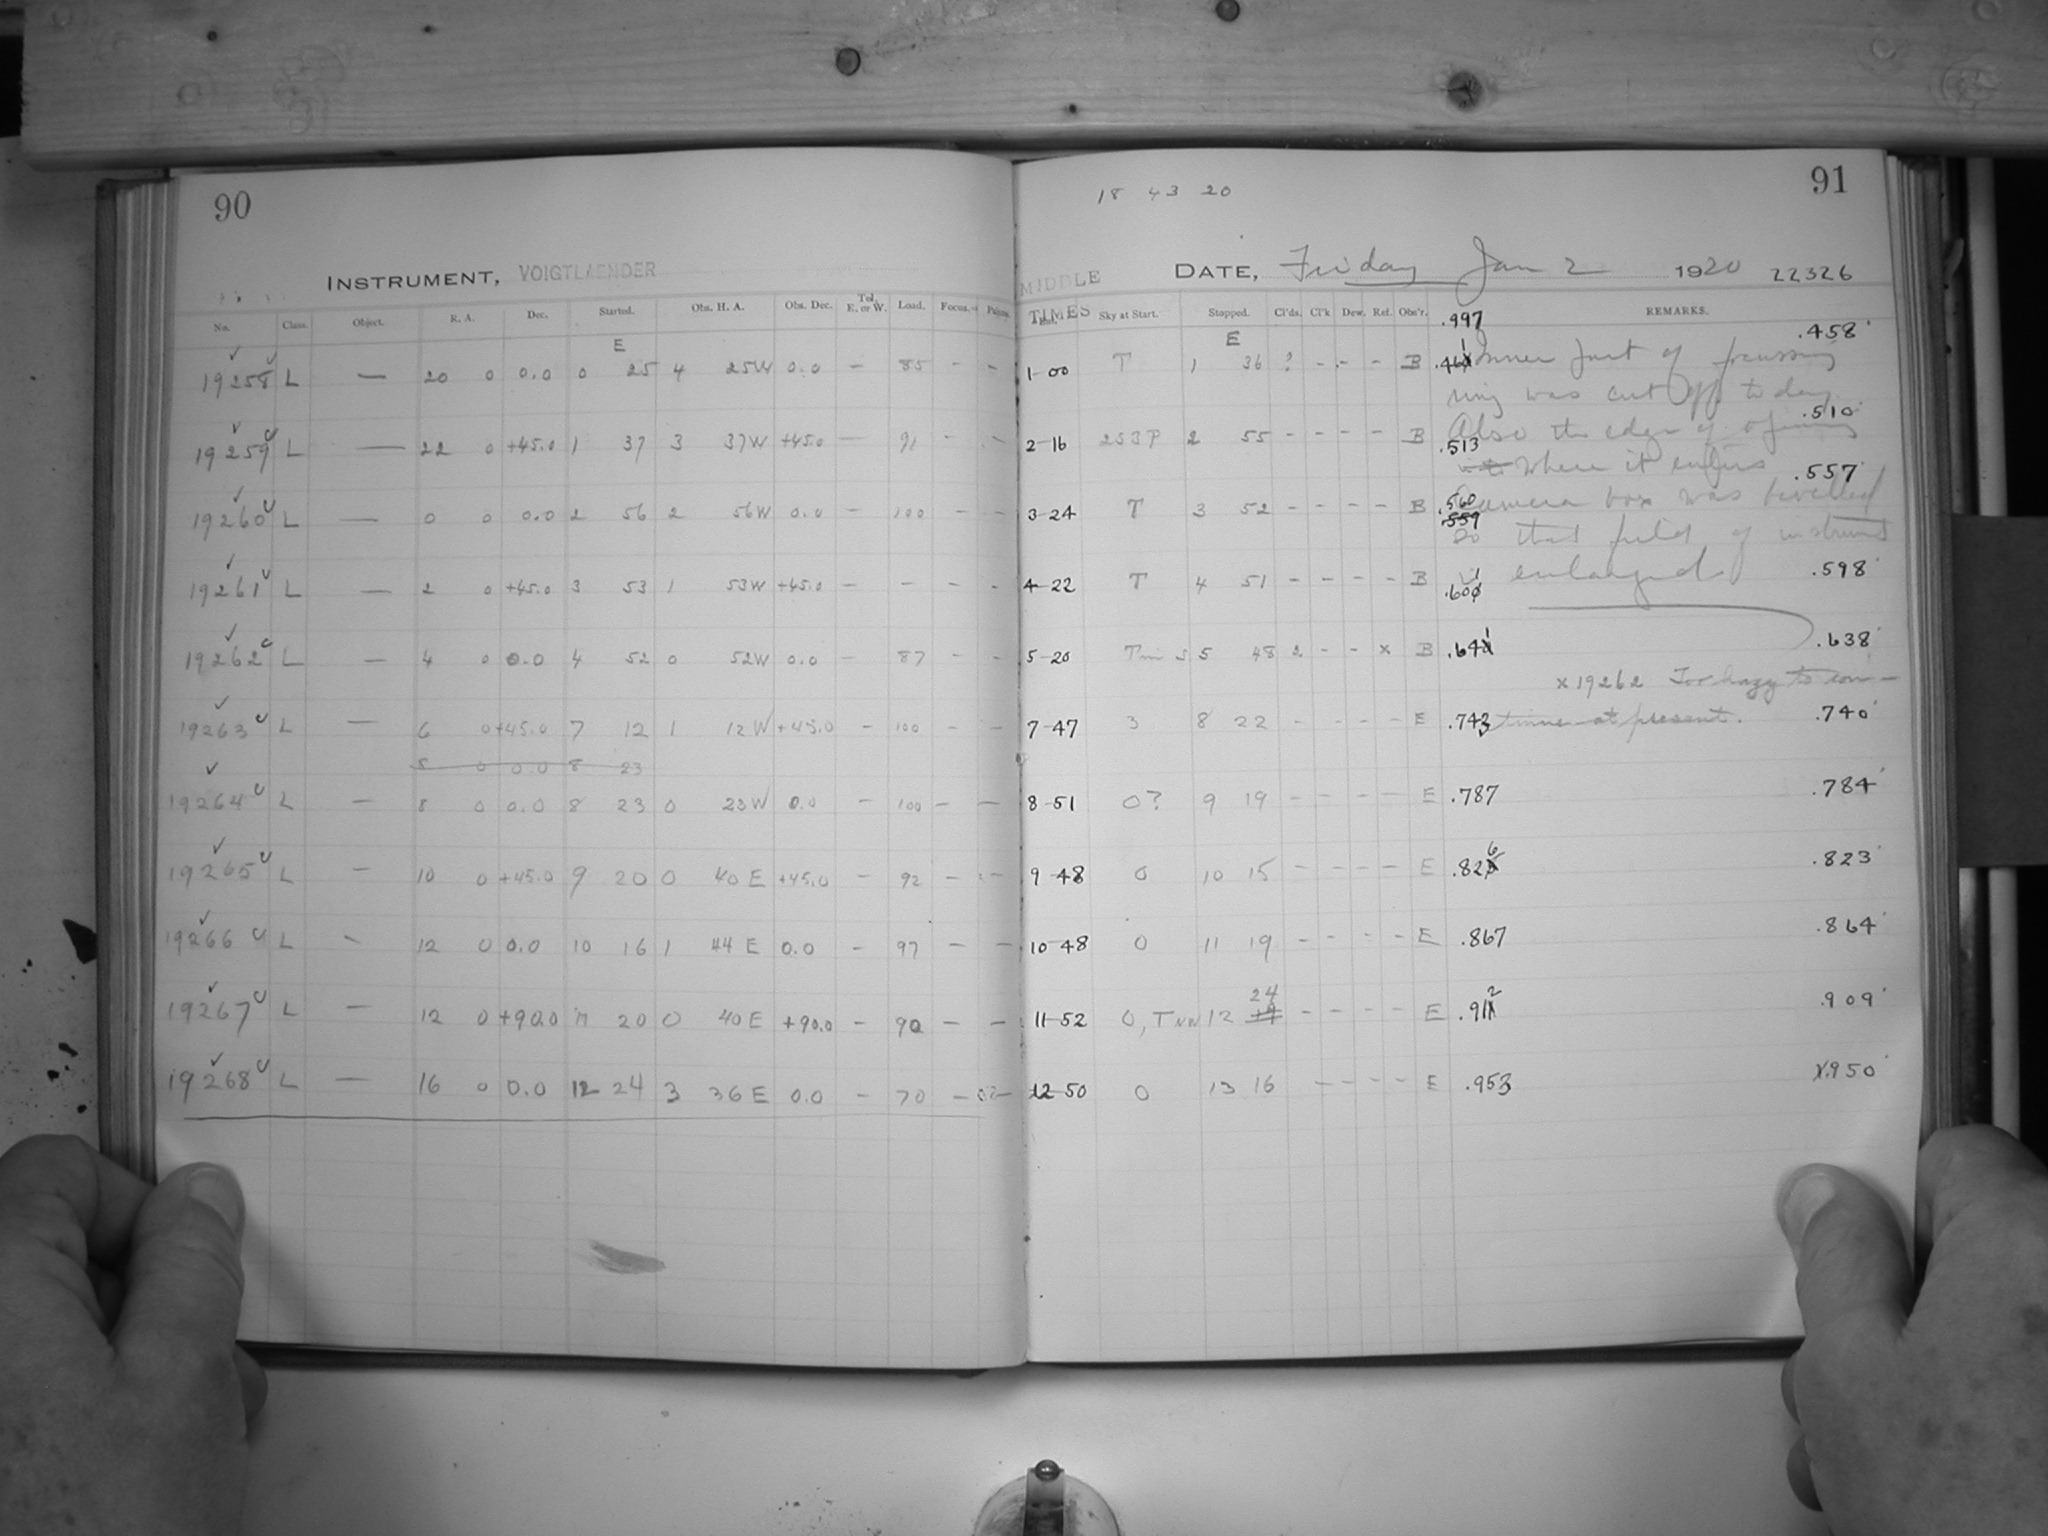 90
INSTRUMENT, VOIGTLAENDER
No. Class. Object. R. A. Dec. Started. Obs. H. A. Obs. Dec. Tel. E. or W. Load. Focus.
E
19258 L — 20 0 0.0 0 25 4 25W 0.0 — 85 - -
19259 L — 22 0 +45.0 1 37 3 37W +45.0 — - -
19260 L — 0 0 0.0 2 56 2 56W 0.0 — 100 - -
19261 L — 2 0 +45.0 3 53 1 53W +45.0 — - - -
19262 L — 4 0 0.0 4 52 0 52W 0.0 — 87 - -
19263 L — 6 0 +45.0 7 12 1 12W +45.0 — 100 - -
8 0 0.0 8 23
19264 L — 8 0 0.0 8 23 0 23W 0.0 — 100 — —
19265 L — 10 0 +45.0 9 20 0 40 E +45.0 — 92 - —
19266 L - 12 0 0.0 10 16 1 44 E 0.0 — 97 - —
19267 L — 12 0 +90.0 11 20 0 40 E +90.0 — 90 — —
19268 L — 16 0 0.0 12 24 3 36 E 0.0 — 70 —
91
18 43 20
MIDDLE DATE, Friday Jan 2 1920 22326
TIMES Sky at Start. Stopped. Cl'ds. Cl'k Dew. Ref. Obs'r. REMARKS.
.997
.458
E
1-00 T 1 36 ? - - - B .461 Inner part of focussing
ring was cut off today.
.510
2-16 253P 2 55 - - - - B .513 Also the edge of opening
where it enters .557
3-24 T 3 52 - - - - B .560 camera box was bevelled
.559
So that field of instrument
4-22 T 4 51 - - - - B .601 is enlarged .598
5-20 5 48 2 - - x B .641 .638
x 19262 Too hazy to con-
7-47 3 8 22 - - - - E .743 tinue at present. .740
8-51 0? 9 19 - - - - E .787 .784
9-48 0 10 15 - - - - E .826 .823
10-48 0 11 19 - - - - E .867 .864
24
11-52 0, T NW 12 19 - - - - E .912 .909
12-50 0 13 16 - - - - E .953 .950